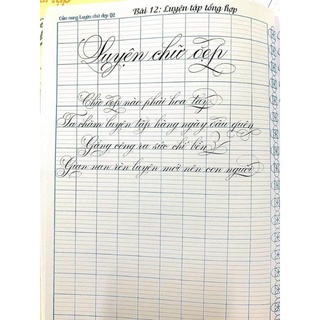 Cẩm nang Luyện chữ đẹp Q2
Bài 12: Luyện tập tổng hợp
Luyện chữ đẹp
Chữ đẹp nào phải hoa tay
Ta chăm luyện tập hàng ngày đâu quên
Gắng công ra sức chí bền
Gian nan rèn luyện mới nên con người